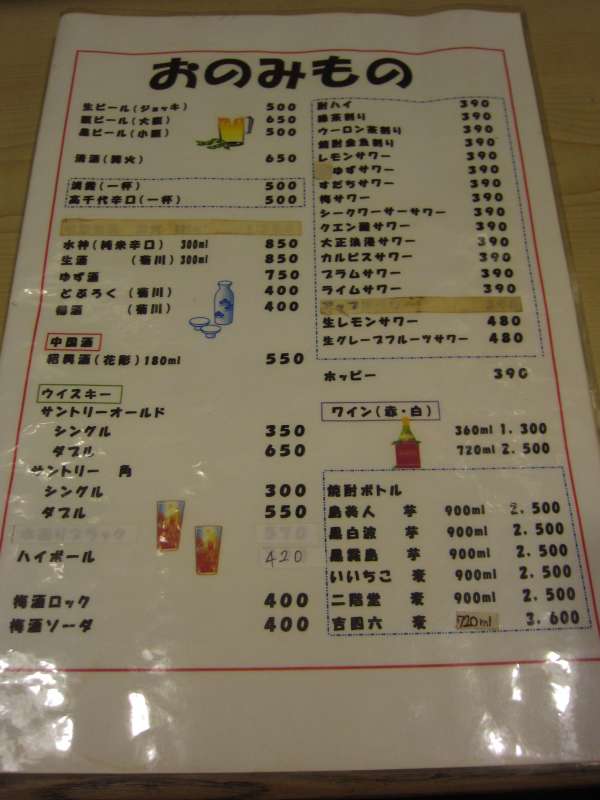 おのみもの
生ビール(ジョッキ) 500
瓶ビール(大瓶) 650
黒ビール(小瓶) 500
清酒(篝火) 650
(一杯) 500
高千代辛口(一杯) 500
水神(純米辛口) 300ml 850
生酒 (菊川) 300ml 850
ゆず酒 750
どぶろく (菊川) 400
樽酒 (菊川) 400
中国酒
紹興酒(花彫) 180ml 550
ウイスキー
サントリーオールド
シングル 350
ダブル 650
サントリー 角
シングル 300
ダブル 550
ハイボール 420
梅酒ロック 400
梅酒ソーダ 400
酎ハイ 390
緑茶割り 390
ウーロン茶割り 390
焼酎金魚割り 390
レモンサワー 390
ゆずサワー 390
すだちサワー 390
梅サワー 390
シークワーサーサワー 390
クエン酸サワー 390
大正浪漫サワー 390
カルピスサワー 390
プラムサワー 390
ライムサワー 390
生レモンサワー 480
生グレープフルーツサワー 480
ホッピー 390
ワイン(赤・白)
360ml 1.300
720ml 2.500
焼酎ボトル
島美人 芋 900ml 2.500
黒白波 芋 900ml 2.500
黒霧島 芋 900ml 2.500
いいちこ 麦 900ml 2.500
二階堂 麦 900ml 2.500
吉四六 麦 720ml 3.600